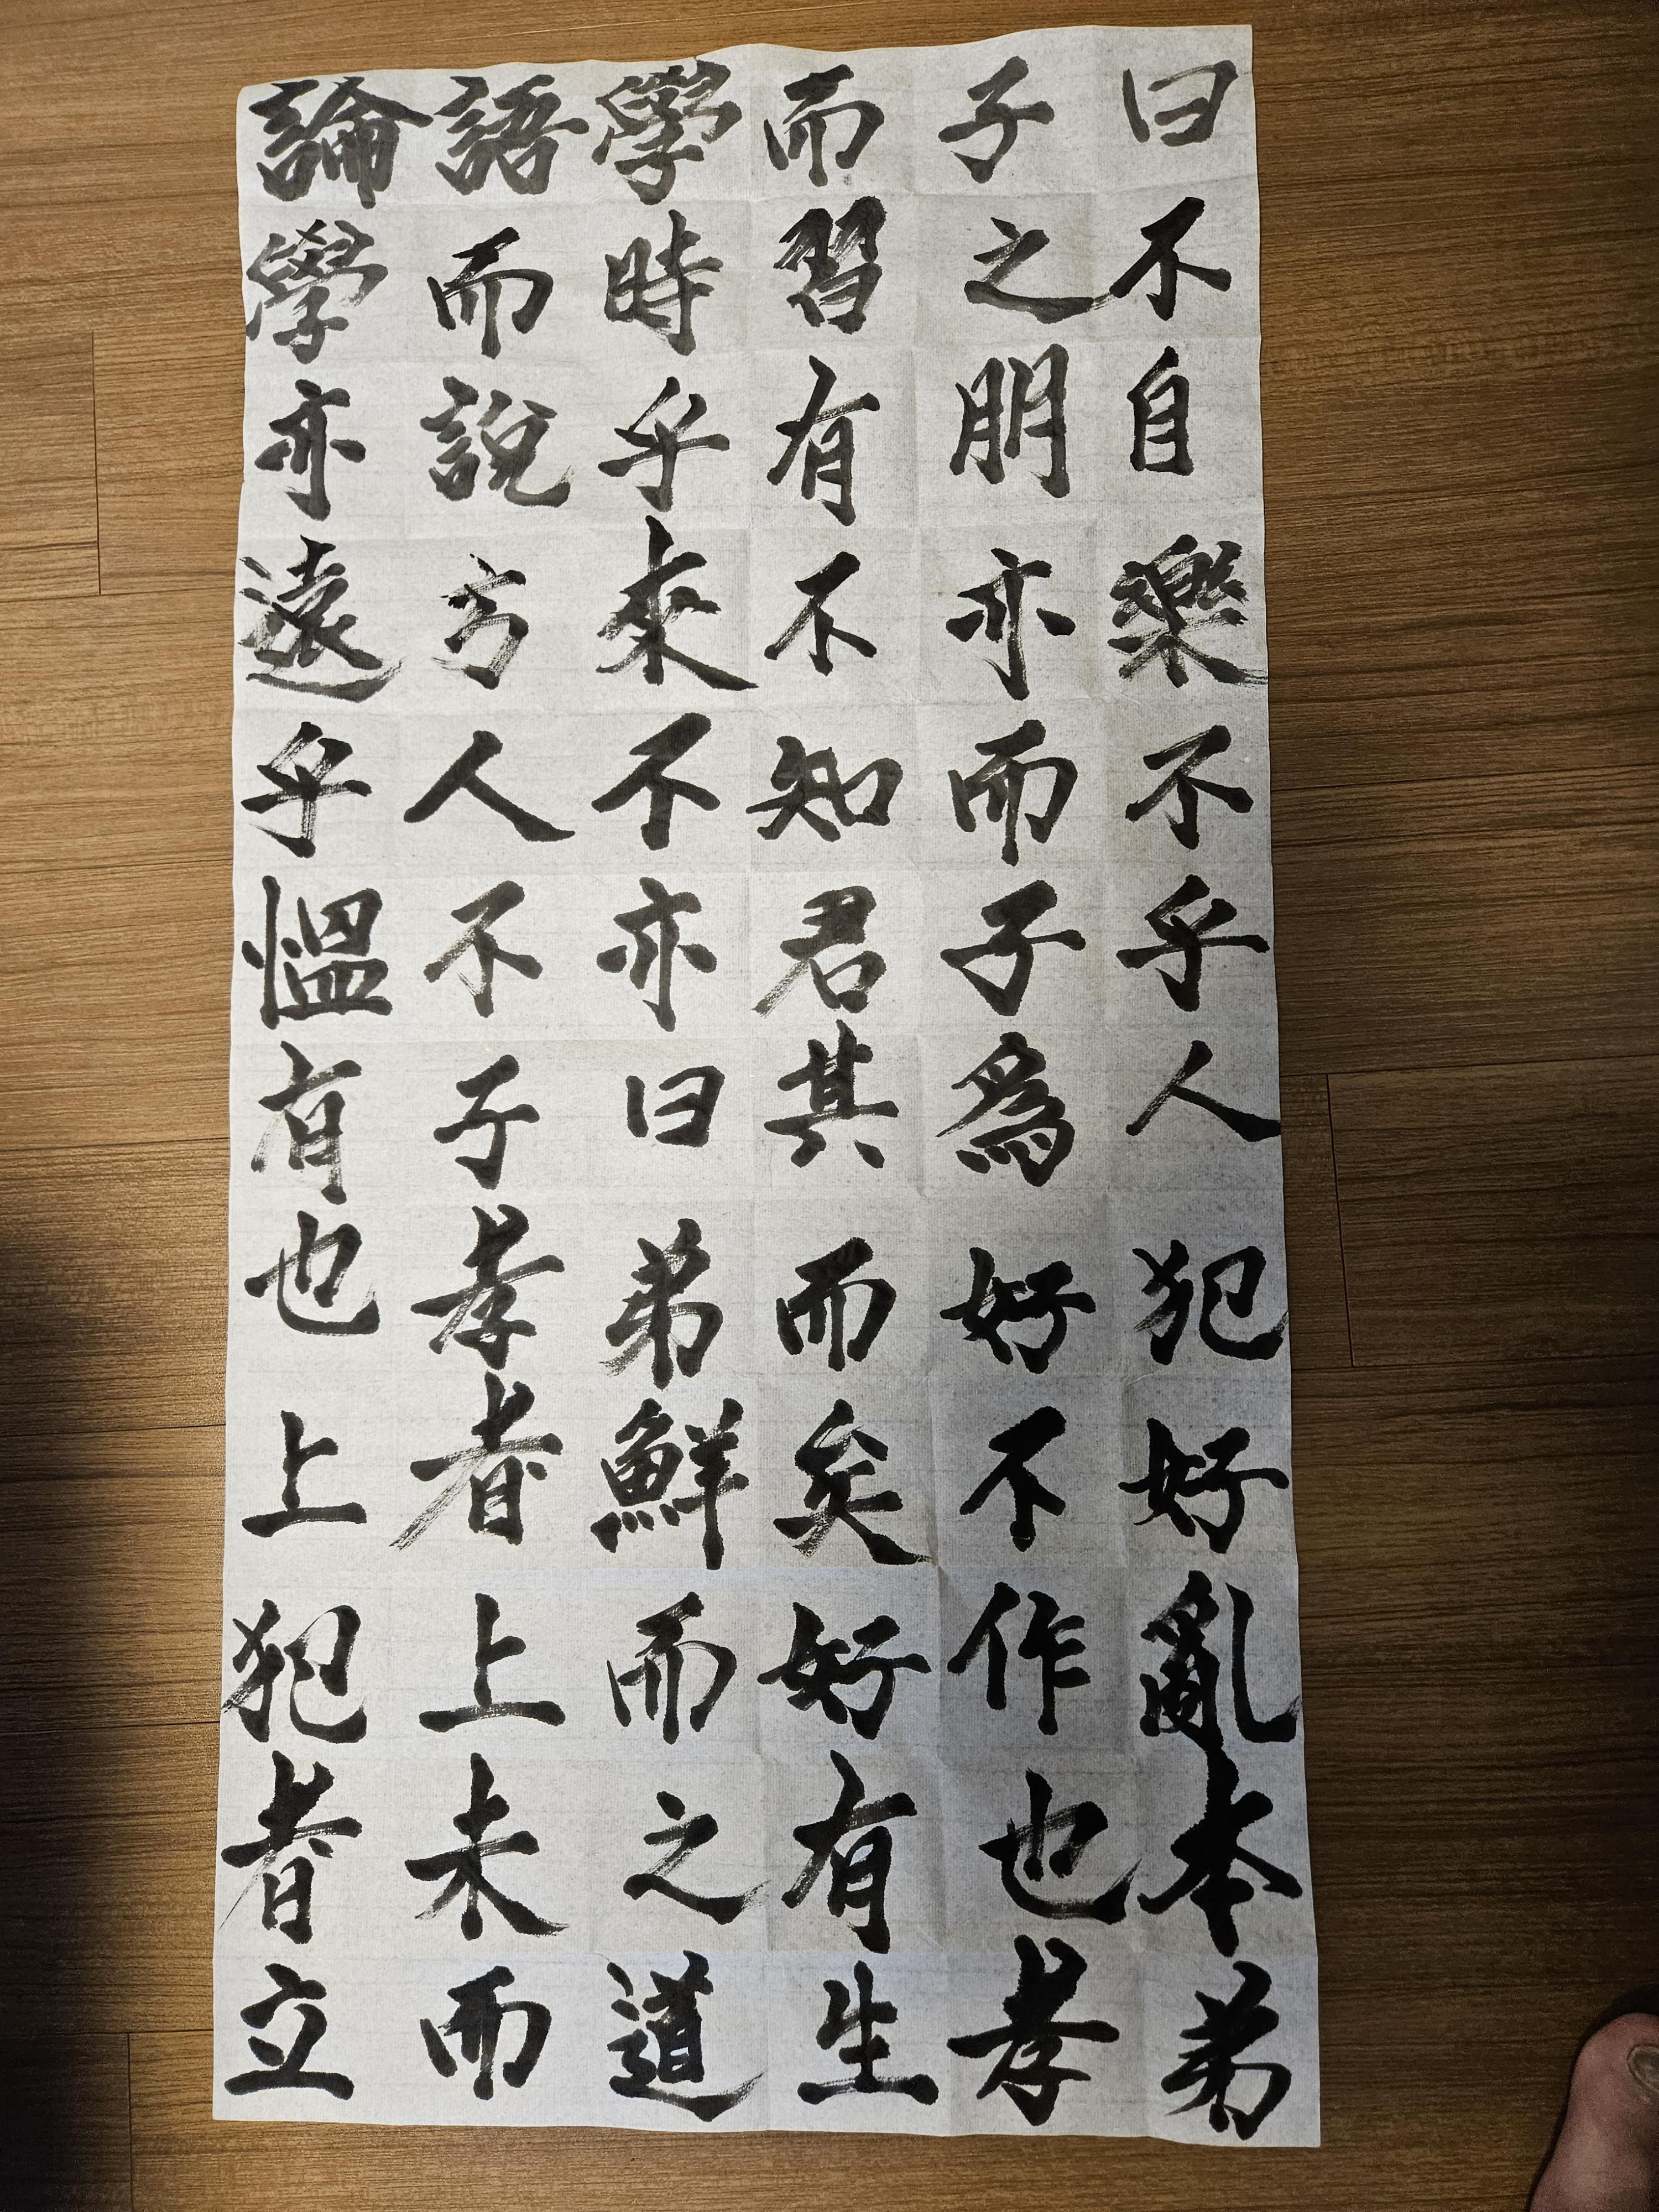 論語學而子曰
學而時習之不
亦說乎有朋自
遠方來不亦樂
乎人不知而不
慍不亦君子乎
有子曰其爲人
也孝弟而好犯
上者鮮矣不好
犯上而好作亂
者未之有也本
立而道生孝弟